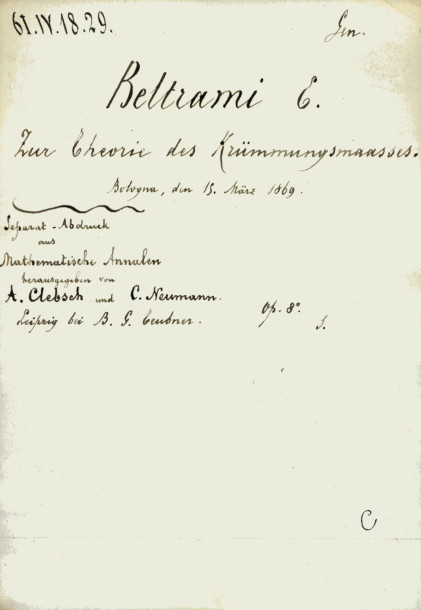 61.IV.18.29.
Gen.
Beltrami E.
Zur Theorie des Krümmungsmaasses.
Bologna, den 15. März 1869.
Separat-Abdruck
aus
Mathematische Annalen
herausgegeben von
A. Clebsch und C. Neumann.
Leipzig bei B. G. Teubner.
Op. 8°.
C